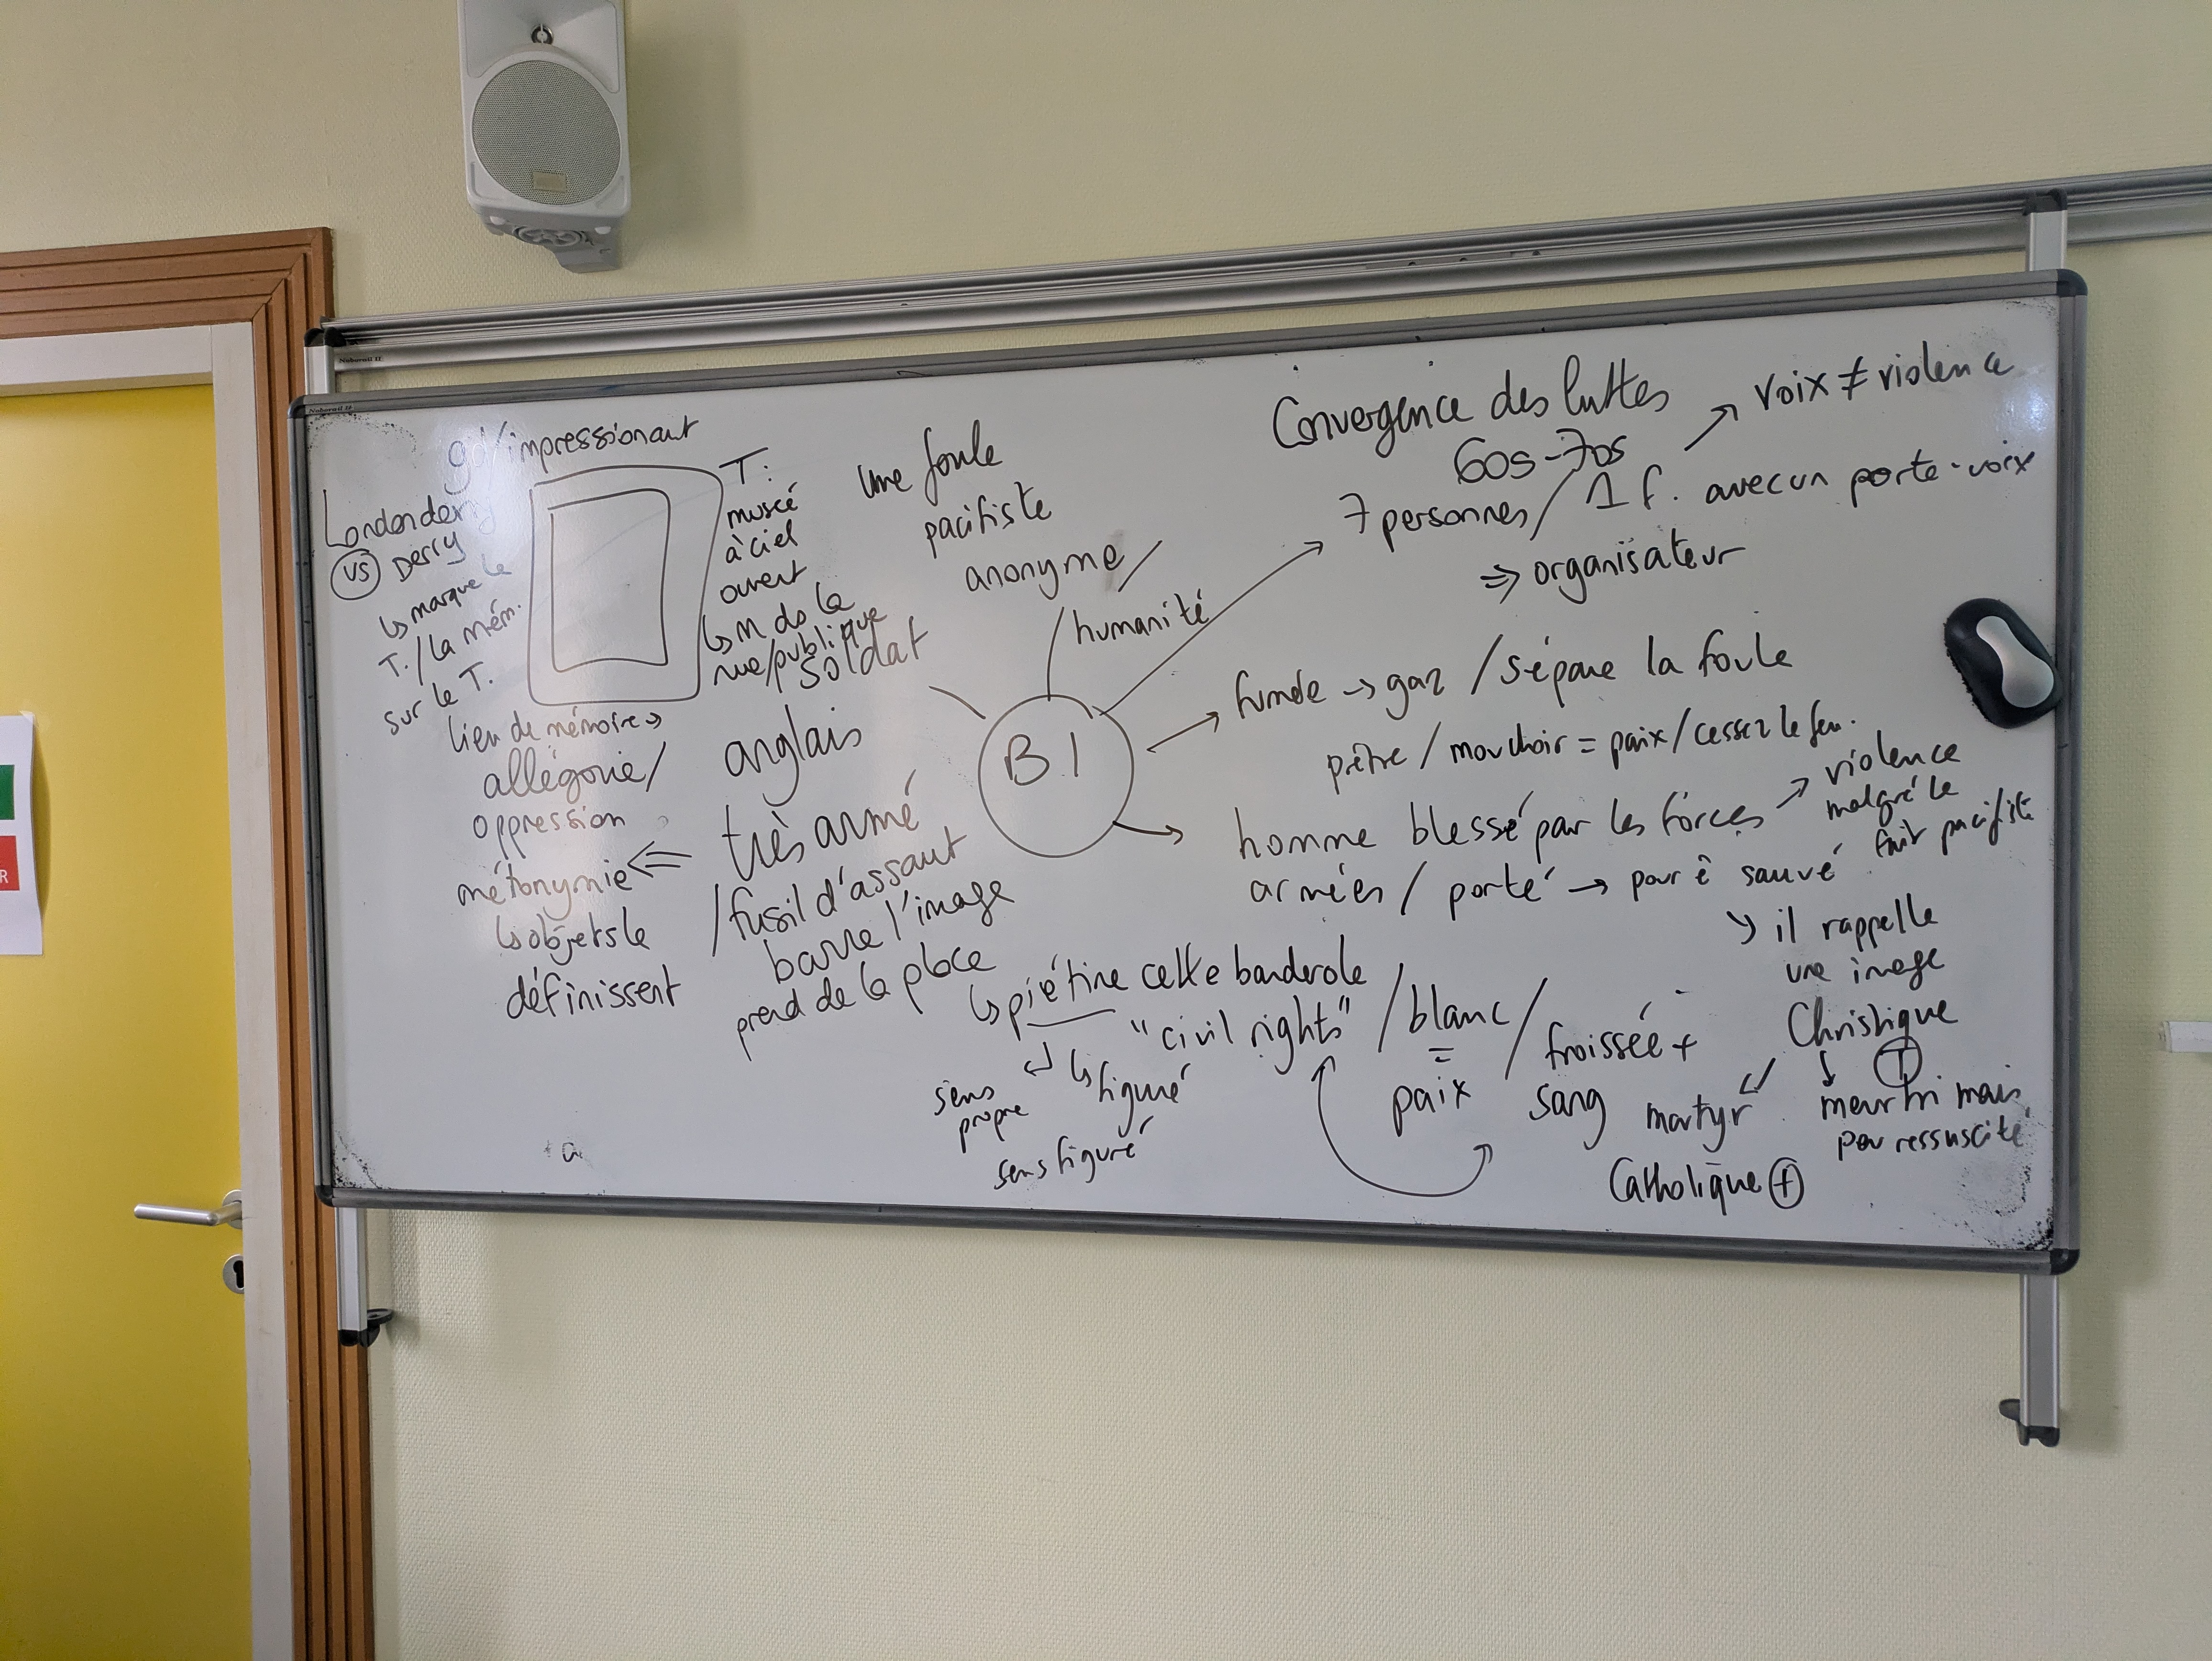 gd/impressionant
Londonderry
VS Derry
↳ marque le
T./la mém.
sur le T.
T.
muscé
à ciel
ouvert
↳ m ds la
rue/publique
lieu de mémoire →
allégorie/
oppression
métonymie ⇐
↳ objets le
définissent
soldat
anglais
très armé
/fusil d'assaut
barre l'image
prend de la place
une foule
pacifiste
anonyme/
/humanité
B1
Convergence des luttes
60s-70s
↗ voix ≠ violence
7 personnes/1 f. avec un porte-voix
⇒ organisateur
fumée → gaz /sépare la foule
prêtre/mouchoir = paix/cessez le feu.
homme blessé par les forces
armées / porté → pour ê sauvé
↗ violence
malgré le
fait pacifiste
↘ il rappelle
une image
Christique
T
martyr
Catholique +
↓ meurtri mais
peu ressuscité
↳ piétine cette banderole
"civil rights" /blanc/ froissée +
=
paix
sang
sens
propre
↳ figuré
sens figuré
a
Noborail II
Noborail II
R